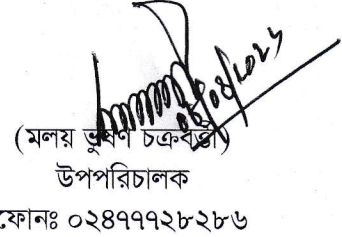 (মলয় ভূষণ চক্রবর্ত্তী)
উপপরিচালক
ফোনঃ ০২৪৭৭৭২৮২৮৬